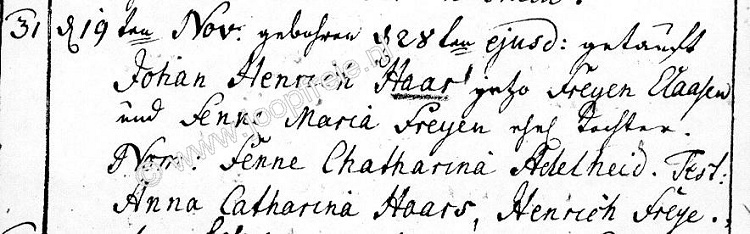 31 d 19ten Nov. gebohren d 28ten ejusd: getauft
Johan Henrich Haar jetzo Freyen Claasen
und Fenne Maria Freyen ehel Tochter.
Nom: Fenne Chatharina Adelheid. Test:
Anna Catharina Haars, Henrich Freye.